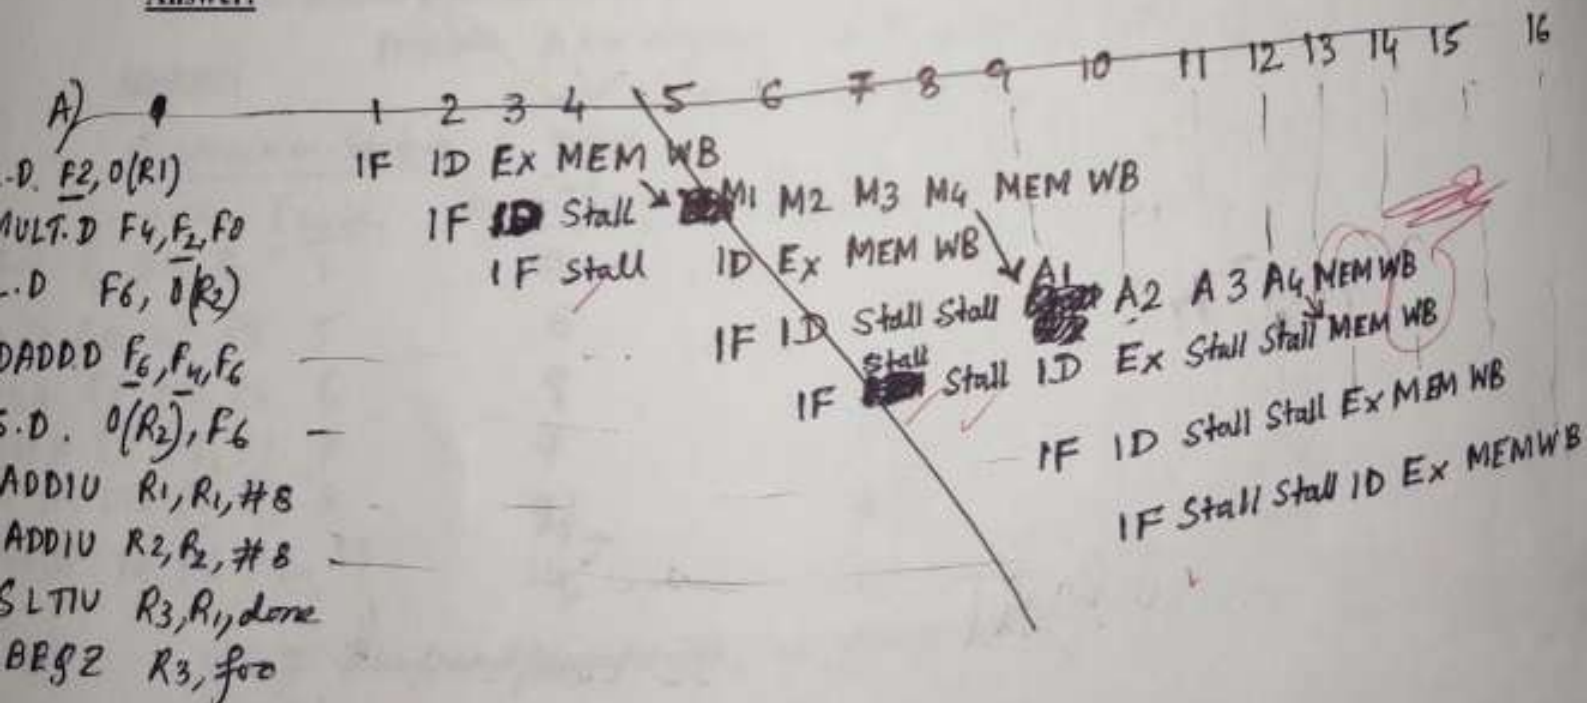 Answer:
A) 1 2 3 4 5 6 7 8 9 10 11 12 13 14 15 16
.D. F2, 0(R1) IF ID EX MEM WB
MULT.D F4, F2, F0 IF ID Stall M1 M2 M3 M4 MEM WB
L.D F6, 0(R2) IF Stall ID EX MEM WB
DADD.D F6, F4, F6 IF ID Stall Stall A1 A2 A3 A4 MEM WB
S.D. 0(R2), F6 IF Stall Stall ID EX Stall Stall MEM WB
ADDIU R1, R1, #8 IF ID Stall Stall EX MEM WB
ADDIU R2, R2, #8 IF Stall Stall ID EX MEM WB
SLTIU R3, R1, done
BEQZ R3, foo